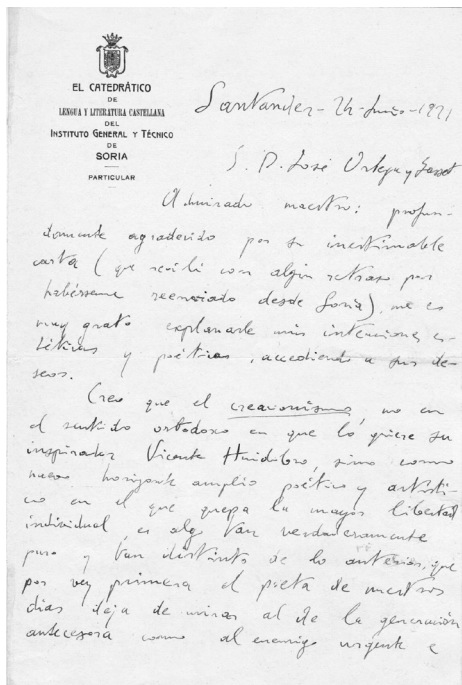 EL CATEDRÁTICO
DE
LENGUA Y LITERATURA CASTELLANA
DEL
INSTITUTO GENERAL Y TÉCNICO
DE
SORIA
PARTICULAR
Santander - 24 - Junio - 1921
S. D. José Ortega y Gasset
Admirado maestro: profun-
damente agradecido por su inestimable
carta (que recibí con algún retraso por
habérseme reenviado desde Soria), me es
muy grato explanarle mis intenciones es-
téticas y poéticas, accediendo a sus de-
seos.
Creo que el creacionismo, no en
el sentido ortodoxo en que lo quiere su
inspirador Vicente Huidobro, sino como
nuevo horizonte amplio poético y artísti-
co en el que quepa la mayor libertad
individual, es algo tan verdaderamente
puro y tan distinto de lo anterior, que
por vez primera el poeta de nuestros
días deja de mirar al de la generación
antecesora como al enemigo urgente e